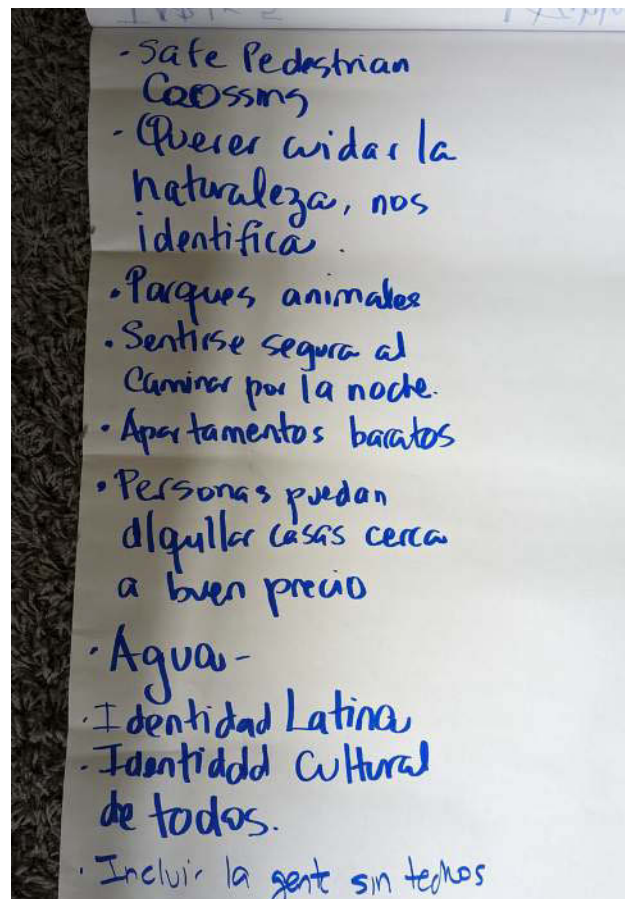 - Safe Pedestrian
Crossing
- Querer cuidar la
naturaleza, nos
identifica.
. Parques animales
. Sentirse segura al
Caminar por la noche.
. Apartamentos baratos
. Personas puedan
alquilar casas cerca
a buen precio
. Agua -
. Identidad Latina
. Identidad Cultural
de todos.
. Incluir la gente sin techos